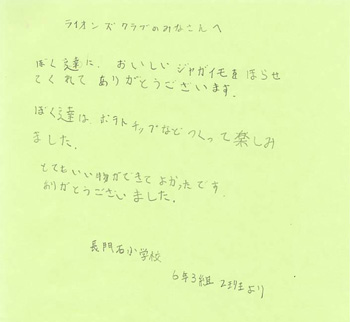 ライオンズクラブのみなさんへ
ぼく達に、おいしいジャガイモをほらせ
てくれてありがとうございます。
ぼく達は、ポテトチップなどつくって楽しみ
ました。
とてもいい物ができてよかったです。
ありがとうございました。
長門石小学校
6年3組 2班より